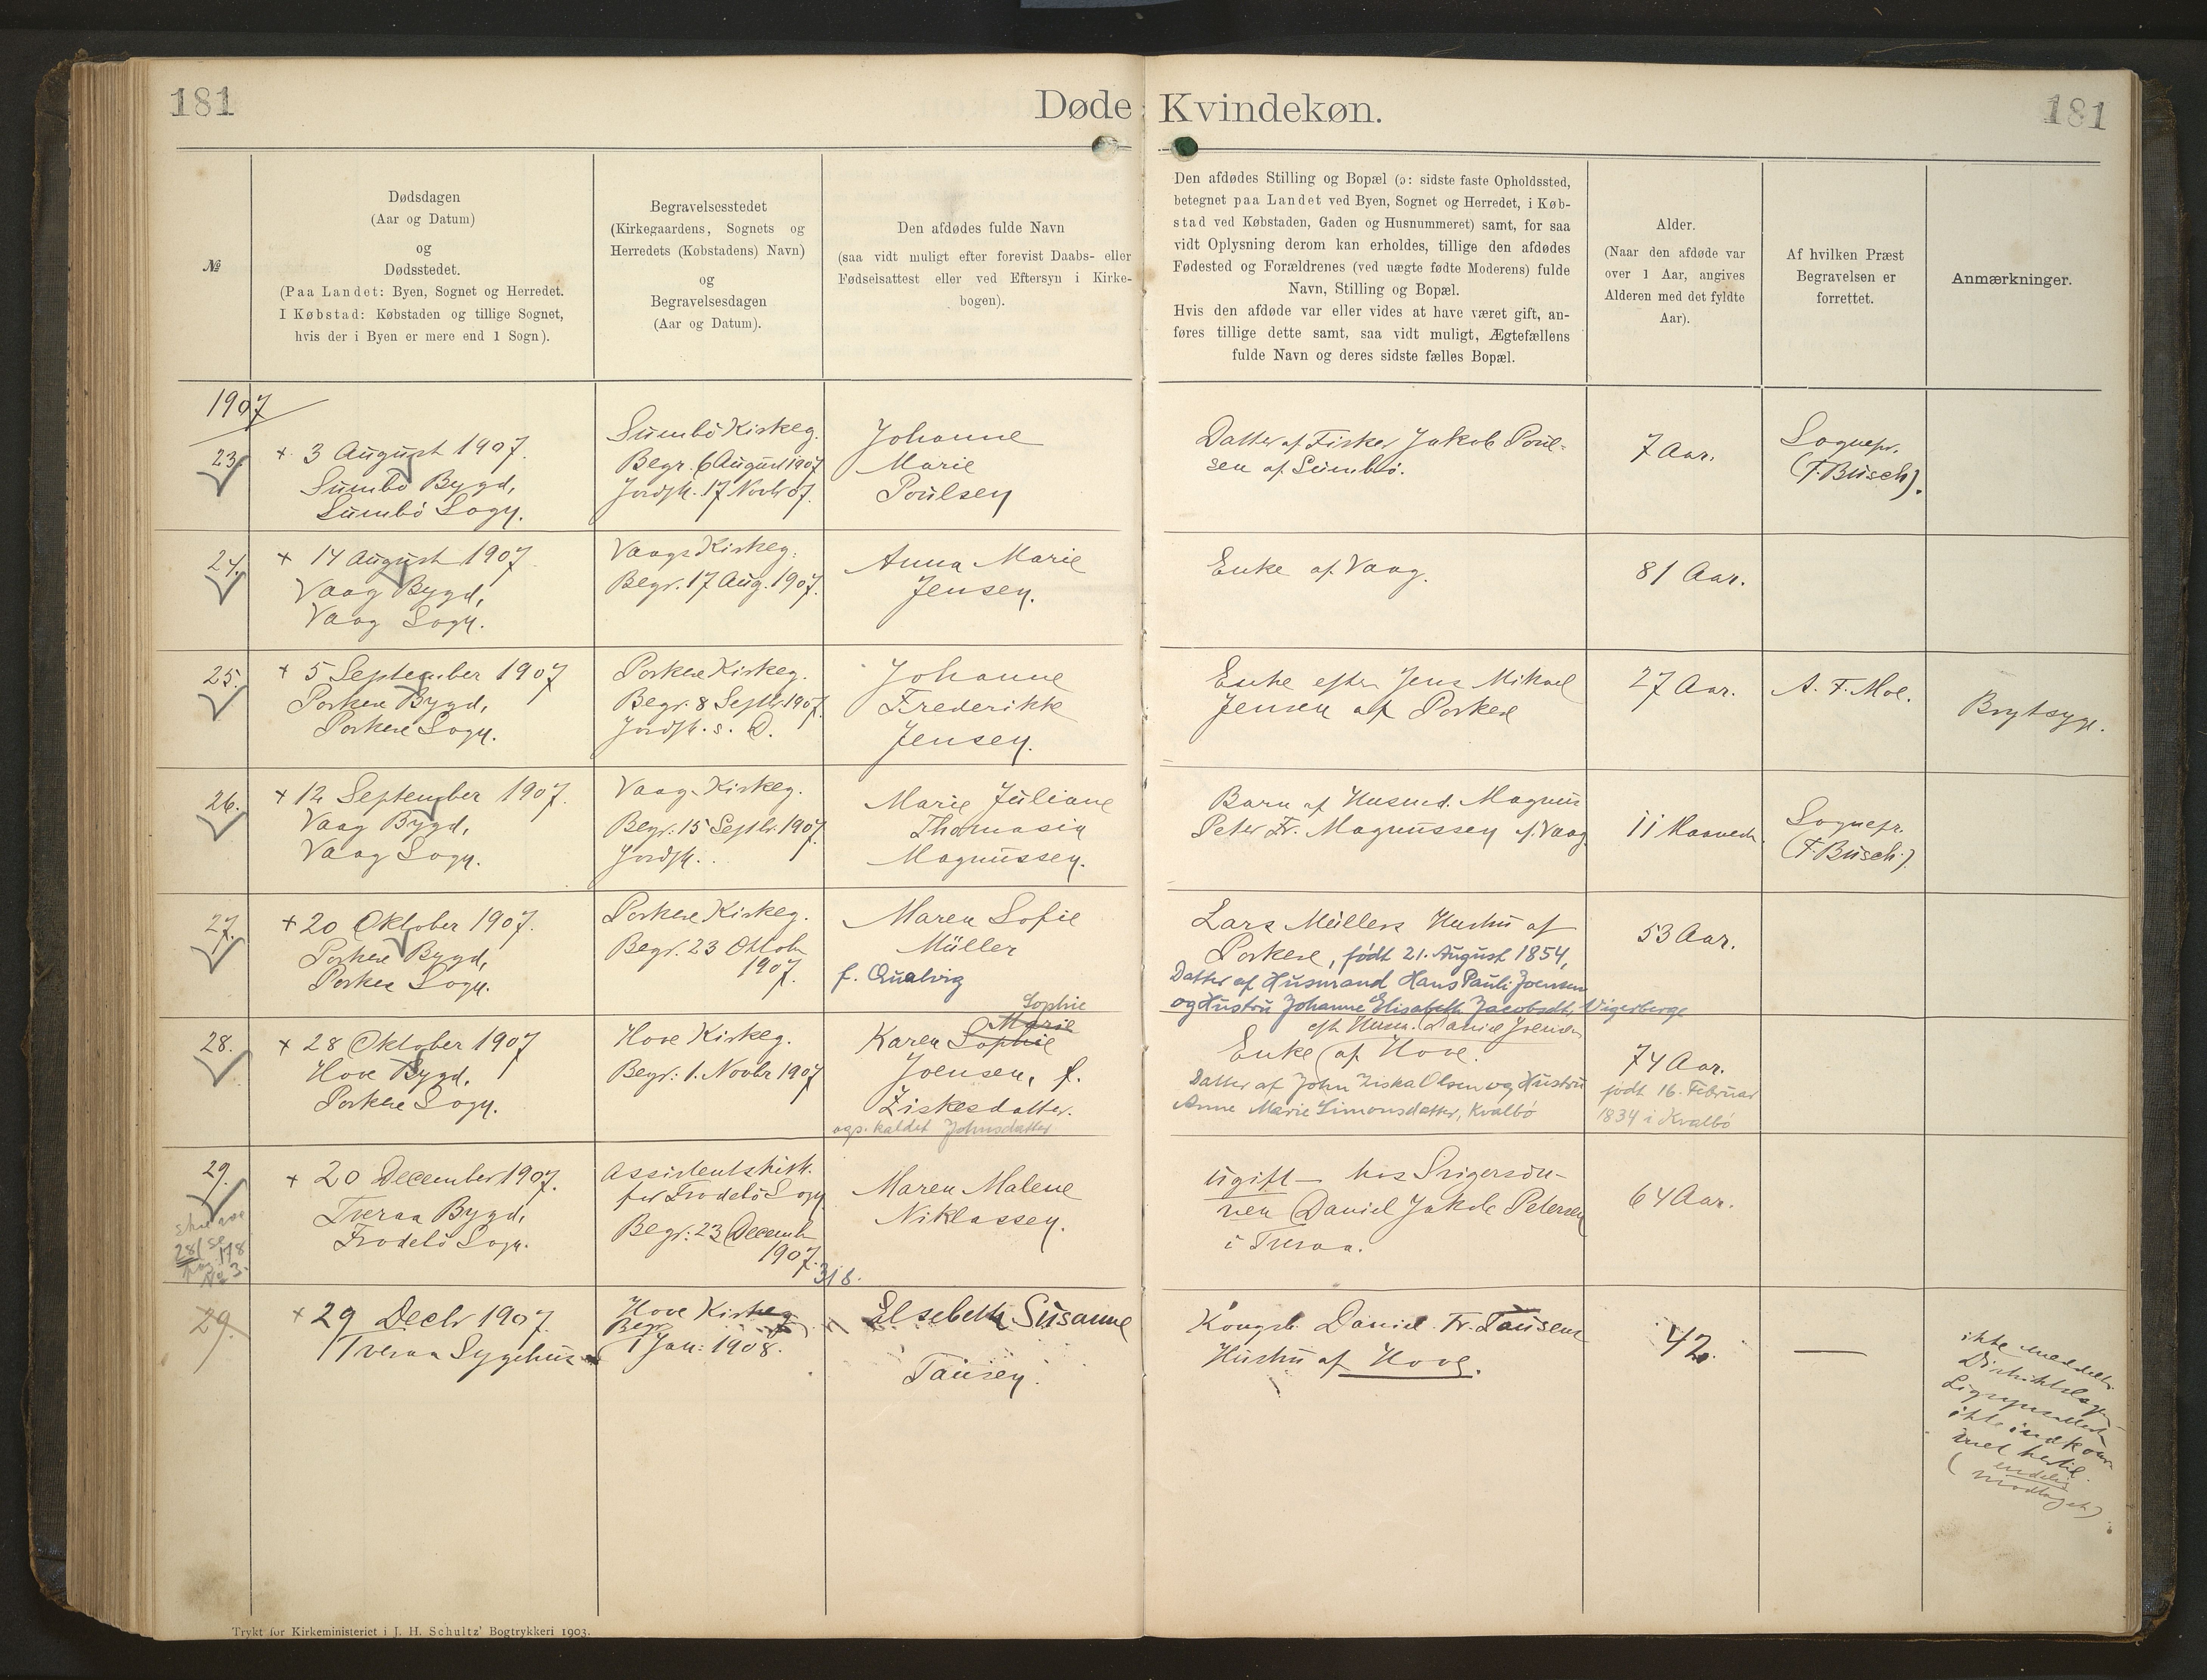 181
Døde Kvindekøn.
181
№
Dødsdagen
(Aar og Datum)
og
Dødsstedet.
(Paa Landet: Byen, Sognet og Herredet.
I Købstad: Købstaden og tillige Sognet,
hvis der i Byen er mere end 1 Sogn).
Begravelsesstedet
(Kirkegaardens, Sognets og
Herredets (Købstadens) Navn)
og
Begravelsesdagen
(Aar og Datum).
Den afdødes fulde Navn
(saa vidt muligt efter forevist Daabs- eller
Fødselsattest eller ved Eftersyn i Kirke-
bogen).
Den afdødes Stilling og Bopæl (ɔ: sidste faste Opholdssted,
betegnet paa Landet ved Byen, Sognet og Herredet, i Køb-
stad ved Købstaden, Gaden og Husnummeret) samt, for saa
vidt Oplysning derom kan erholdes, tillige den afdødes
Fødested og Forældrenes (ved uægte fødte Moderens) fulde
Navn, Stilling og Bopæl.
Hvis den afdøde var eller vides at have været gift, an-
føres tillige dette samt, saa vidt muligt, Ægtefællens
fulde Navn og deres sidste fælles Bopæl.
Alder.
(Naar den afdøde var
over 1 Aar, angives
Alderen med det fyldte
Aar).
Af hvilken Præst
Begravelsen er
forrettet.
Anmærkninger.
1907
23.
+ 3 August 1907.
Sumbö Bygd,
Sumbö Sogn.
Sumbö Kirkeg.
Begr. 6 August 1907
Jordfk. 17 Novbr 07.
Johanne
Marie
Poulsen
Datter af Fisker Jakob Poul-
sen af Sumbö.
7 Aar.
Sognepr.
(F. Busch).
24.
+ 14 August 1907
Vaag Bygd,
Vaag Sogn.
Vaags Kirkeg.
Begr. 17 Aug. 1907.
Anna Marie
Jensen.
Enke af Vaag.
81 Aar.
25.
+ 5 September 1907
Porkere Bygd,
Porkere Sogn.
Porkere Kirkeg.
Begr. 8 Septbr. 1907.
Jordfk. s. D.
Johanne
Frederikke
Jensen.
Enke efter Jens Mikael
Jensen af Porkere
27 Aar.
A. F. Moe.
Brystsyge.
26.
+ 12 September 1907.
Vaag Bygd,
Vaag Sogn.
Vaag Kirkeg.
Begr. 15 Septbr. 1907.
Jordfk.
Marie Juliane
Thomasin
Magnussen.
Barn af Husmd. Magnus
Peter Fr. Magnussen af Vaag
11 Maaneder.
Sognepr.
(F. Busch.)
27.
+ 20 Oktober 1907.
Porkere Bygd,
Porkere Sogn.
Porkere Kirkeg.
Begr. 23 Oktob.
1907.
Maren Sofie
Müller
f. Qualvig
Lars Müllers Hustru af
Porkere, født 21. August 1854,
Datter af Husmand Hans Pauli Joensen
og Hustru Johanne Elisabeth Jacobsdt. Vigerberge
53 Aar.
28.
+ 28 Oktober 1907
Hove Bygd,
Porkere Sogn.
Hove Kirkeg.
Begr: 1. Novbr 1907
Sophie
Marie
Karen Sophie
Joensen, f.
Ziskesdatter.
ogs. kaldet Johnsdatter
eft. Husm. Daniel Joensen
Enke af Hove.
Datter af John Ziska Olsen og Hustru
Anne Marie Simonsdatter, Kvalbö
74 Aar.
født 16. Februar
1834 i Kvalbö
29.
+ 20 December 1907.
Tveraa Bygd,
Frodebö Sogn.
Assistentskirk.
for Frodebö Sogn
Begr: 23 Decemb.
1907.
Maren Malene
Niklassen.
ugift – hos Svigersön-
nen Daniel Jakob Petersen
i Tveraa.
64 Aar.
28/ se
pag. 178
No 3.
318.
29.
+ 29 Decbr 1907.
Tveraa Sygehus
Hove Kirkeg
Begr.
1 Jan: 1908.
Elsebeth Susanne
Tausen.
Kongsb. Daniel Fr. Tausens
Hustru af Hove.
42.
—
ikke meddelt
Distriktslægen
Ligsynsattest
ikke indkom-
met hertil.
(endelig
modtaget)
Trykt for Kirkeministeriet i J. H. Schultz' Bogtrykkeri 1903.